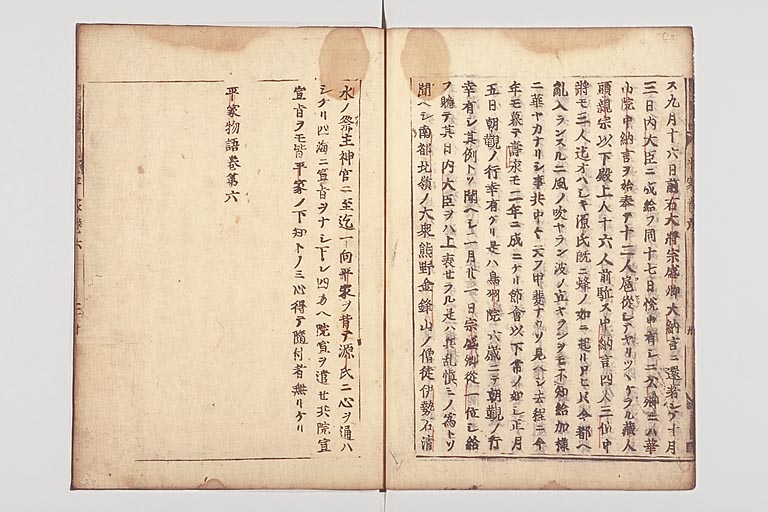 ス九月十六日前右大將宗盛卿大納言ニ還著シテ十月
三日内大臣ニ成給フ同十七日悦申有シニ公卿ニハ華
山院中納言ヲ始奉テ十二人扈從シテヤリツヽケラル藏人
頭親宗以下殿上人十六人前駈ス中納言四人三位中
將モ三人迄オハシキ源氏既ニ蜂ノ如ニ起リ只今都ヘ
亂入ランスルニ風ノ吹ヤラン波ノ立ヤランヲモ不知給加樣
ニ華ヤカナリシ事共中々云フ甲斐ナウソ見ヘシ去程ニ今
年モ暮テ壽永モ二年ニ成ニケリ節會以下常ノ如シ正月
五日朝覲ノ行幸有ケリ是ハ鳥羽院六歳ニテ朝覲ノ行
幸有シ其例トソ聞ヘシ二月廿一日宗盛卿從一位シ給
フ聽テ其日内大臣ヲハ上表セラル是ハ兵乱愼ミノ爲トソ
聞ヘシ南都北嶺ノ大衆熊野金峰山ノ僧徒伊勢石清
水ノ祭主神官ニ至迄一向平家ヲ背テ源氏ニ心ヲ通ハ
シケリ四海ニ宣旨ヲナシ下シ四方ヘ院宣ヲ遣セ共院宣
宣旨ヲモ皆平家ノ下知トノミ心得テ隨付者無リケリ
平家物語卷第六